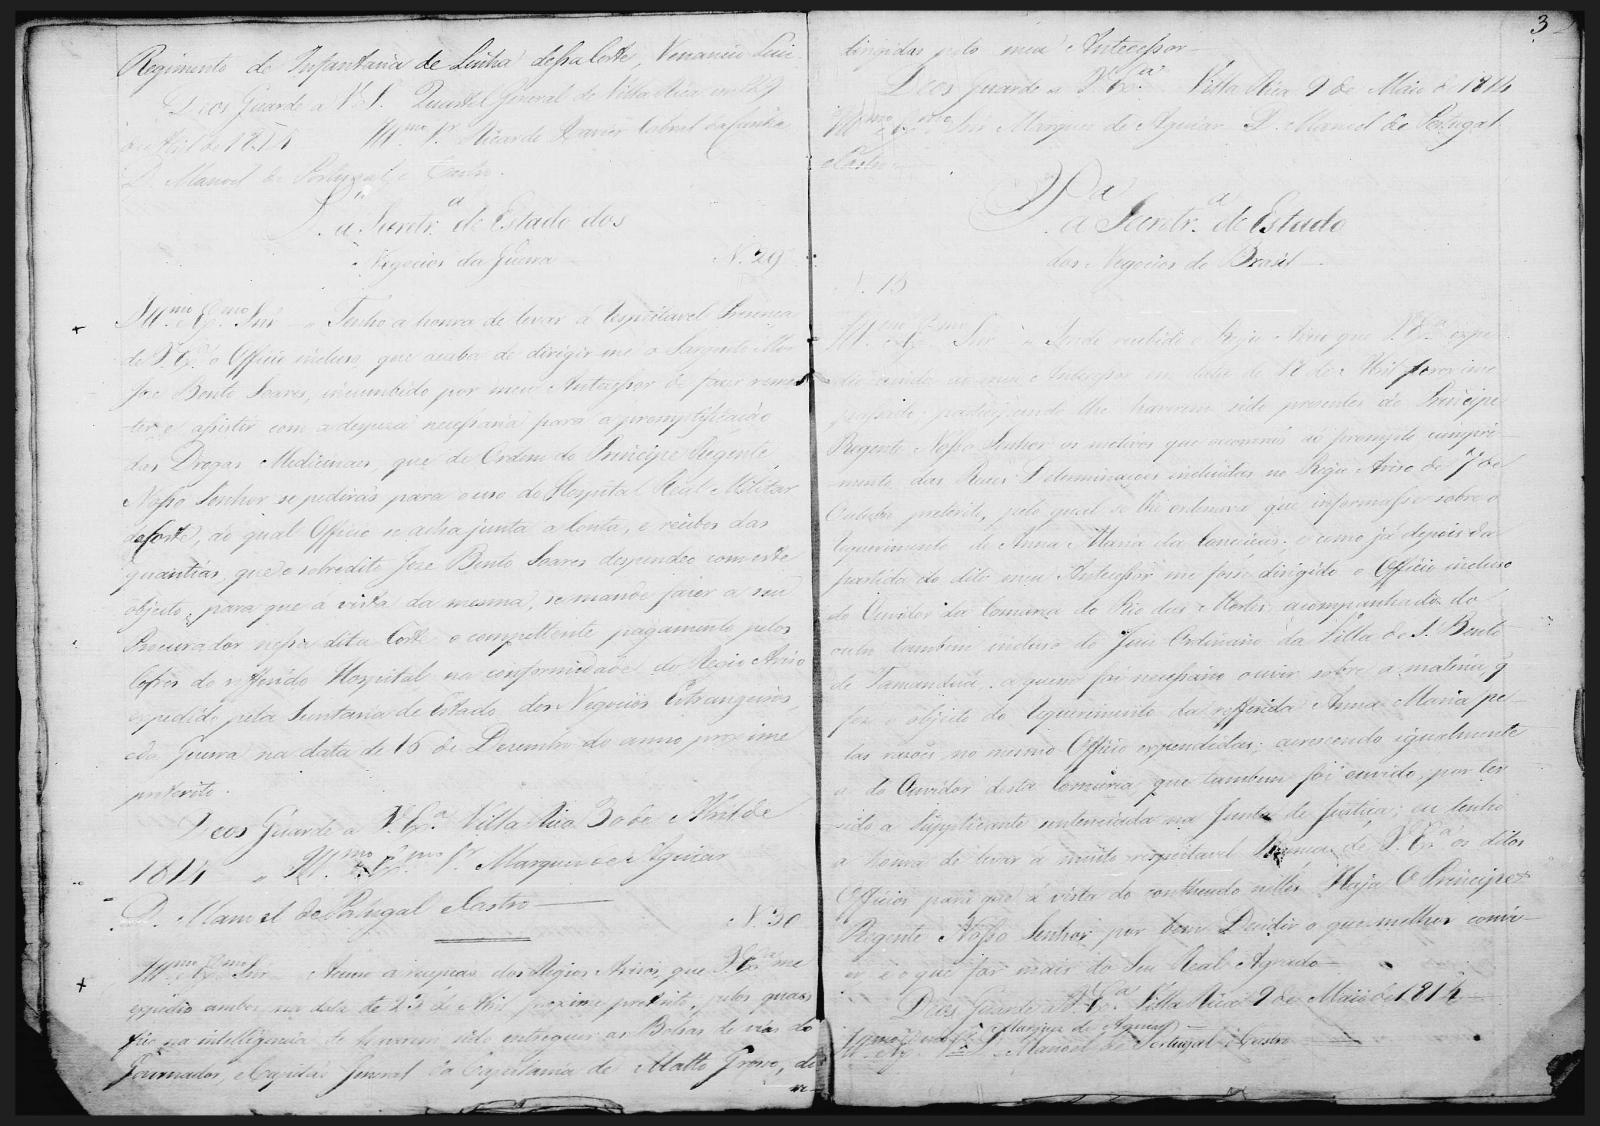 Regimento de Infantaria de Linha dessa Corte, Venancio Luiz
Deos Guarde a V. S. Quartel General de Villa Rica em 29
de Abril de 1814 Illmo. Sr. Ricardo Xavier Cabral da Cunha
D. Manoel de Portugal e Castro.
Pa. a Secretra. de Estado dos
Negocios da Guerra N. 29
Illmo. e Exmo. Snr. Tenho a honra de levar á respeitavel Prezença
de V. Exa. o Officio incluso, que acaba de dirigir-me o Sargento Mor
Jose Bento Soares, incumbido por meu Antecessor de fazer remet
ter e assistir com a despeza necessaria para a promptificação
das Drogas Medicinaes, que de Ordem do Principe Regente
Nosso Senhor se pedirão para o uso do Hospital Real Militar
da Corte, ao qual Officio se acha junta a Conta, e recibos das
quantias, que o sobredito Jose Bento Soares despendeo com este
objecto; para que á vista da mesma, se mande fazer a seu
Procurador nessa dita Corte o competente pagamento pelos
Cofres do refferido Hospital na conformidade do Regio Aviso
expedido pela Secretaria de Estado dos Negocios Estrangeiros,
e da Guerra na data de 16 de Dezembro do anno proximo
preterito.
Deos Guarde a V. Exa. Villa Rica 30 de Abril de
1814 Illmo. e Exmo. Sr. Marquez de Aguiar
D. Manoel de Portugal e Castro
N. 30
Illmo. e Exmo. Snr. Accuso a recepção dos Regios Avisos, que V. Exa. me
expedio ambos na data de 23 de Abril proximo preterito, pelos quaes
fico na intelligencia de haverem sido entregues as Bolsas de vias do
Governador, e Capitão General da Capitania de Matto Grosso, di
re
3
dirigidas pelo meu Antecessor
Deos Guarde a V. Exa. Villa Rica 9 de Maio de 1814
Illmo. e Exmo. Snr. Marquez de Aguiar D. Manoel de Portugal
e Castro
Pa. a Secretra. de Estado
dos Negocios do Brasil
N. 13
Illmo. e Exmo. Snr. Sendo recebido o Regio Aviso que V. Exa. expe
dio ainda ao meu Antecessor em data de 12 de Abril proximo
passado, participando lhe haverem sido presentes ao Principe
Regente Nosso Senhor os motivos que ao prompto cumpri
mento das Reaes Determinações incluidas no Regio Aviso de 7 de
Outubro preterito, pelo qual se lhe ordenava que informasse sobre o
requerimento de Anna Maria da Conceição; e como já depois da
partida do dito meu Antecessor me fosse dirigido o Officio incluso
do Ouvidor da Comarca do Rio das Mortes, acompanhado do
outro tambem incluso do Juiz Ordinario da Villa de S. Bento
de Tamanduá, a quem foi necessario ouvir sobre a materia, q
fez o objecto do requerimento da refferida Anna Maria pe
las razões no mesmo Officio expendidas; acrescendo igualmente
a do Ouvidor desta Comarca, que tambem foi ouvido, por ter
sido a Supplicante sentenciada na Junta de Justiça; eu tenho
a honra de levar á muito respeitavel Prezença de V. Exa. os ditos
Officios para que á vista do contheudo nelles Haja O Principe
Regente Nosso Senhor por bem Decidir o que melhor convi
er, e o que for mais do Seu Real Agrado
Deos Guarde a V. Exa. Villa Rica 9 de Maio de 1814
Illmo. e Exmo. Sr. Marquez de Aguiar
D. Manoel de Portugal e Castro